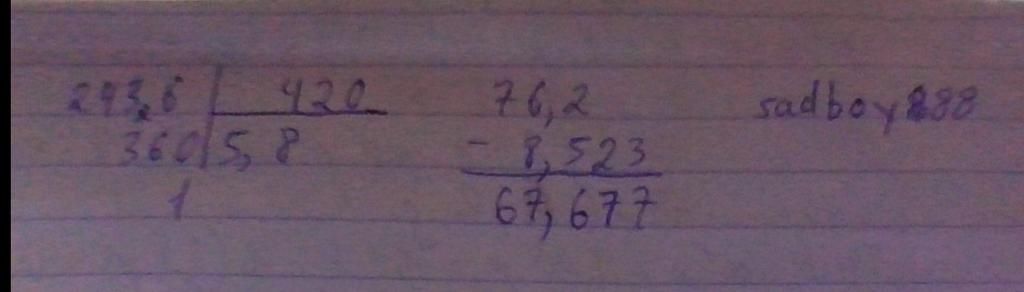 243,6 420 76,2 sadboy288
360 5,8 - 8,523
1 67,677